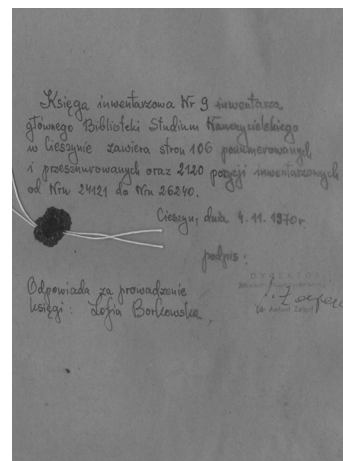 Księga inwentarzowa Nr 9 inwentarza
głównego Biblioteki Studium Nauczycielskiego
w Cieszynie zawiera stron 106 ponumerowanych
i przesznurowanych oraz 2120 pozycji inwentarzowych
od Nru 24121 do Nru 26240.
Cieszyn, dnia 4.11.1970 r
podpis:
DYREKTOR
Odpowiada za prowadzenie
księgi: Zofia Borkowska.